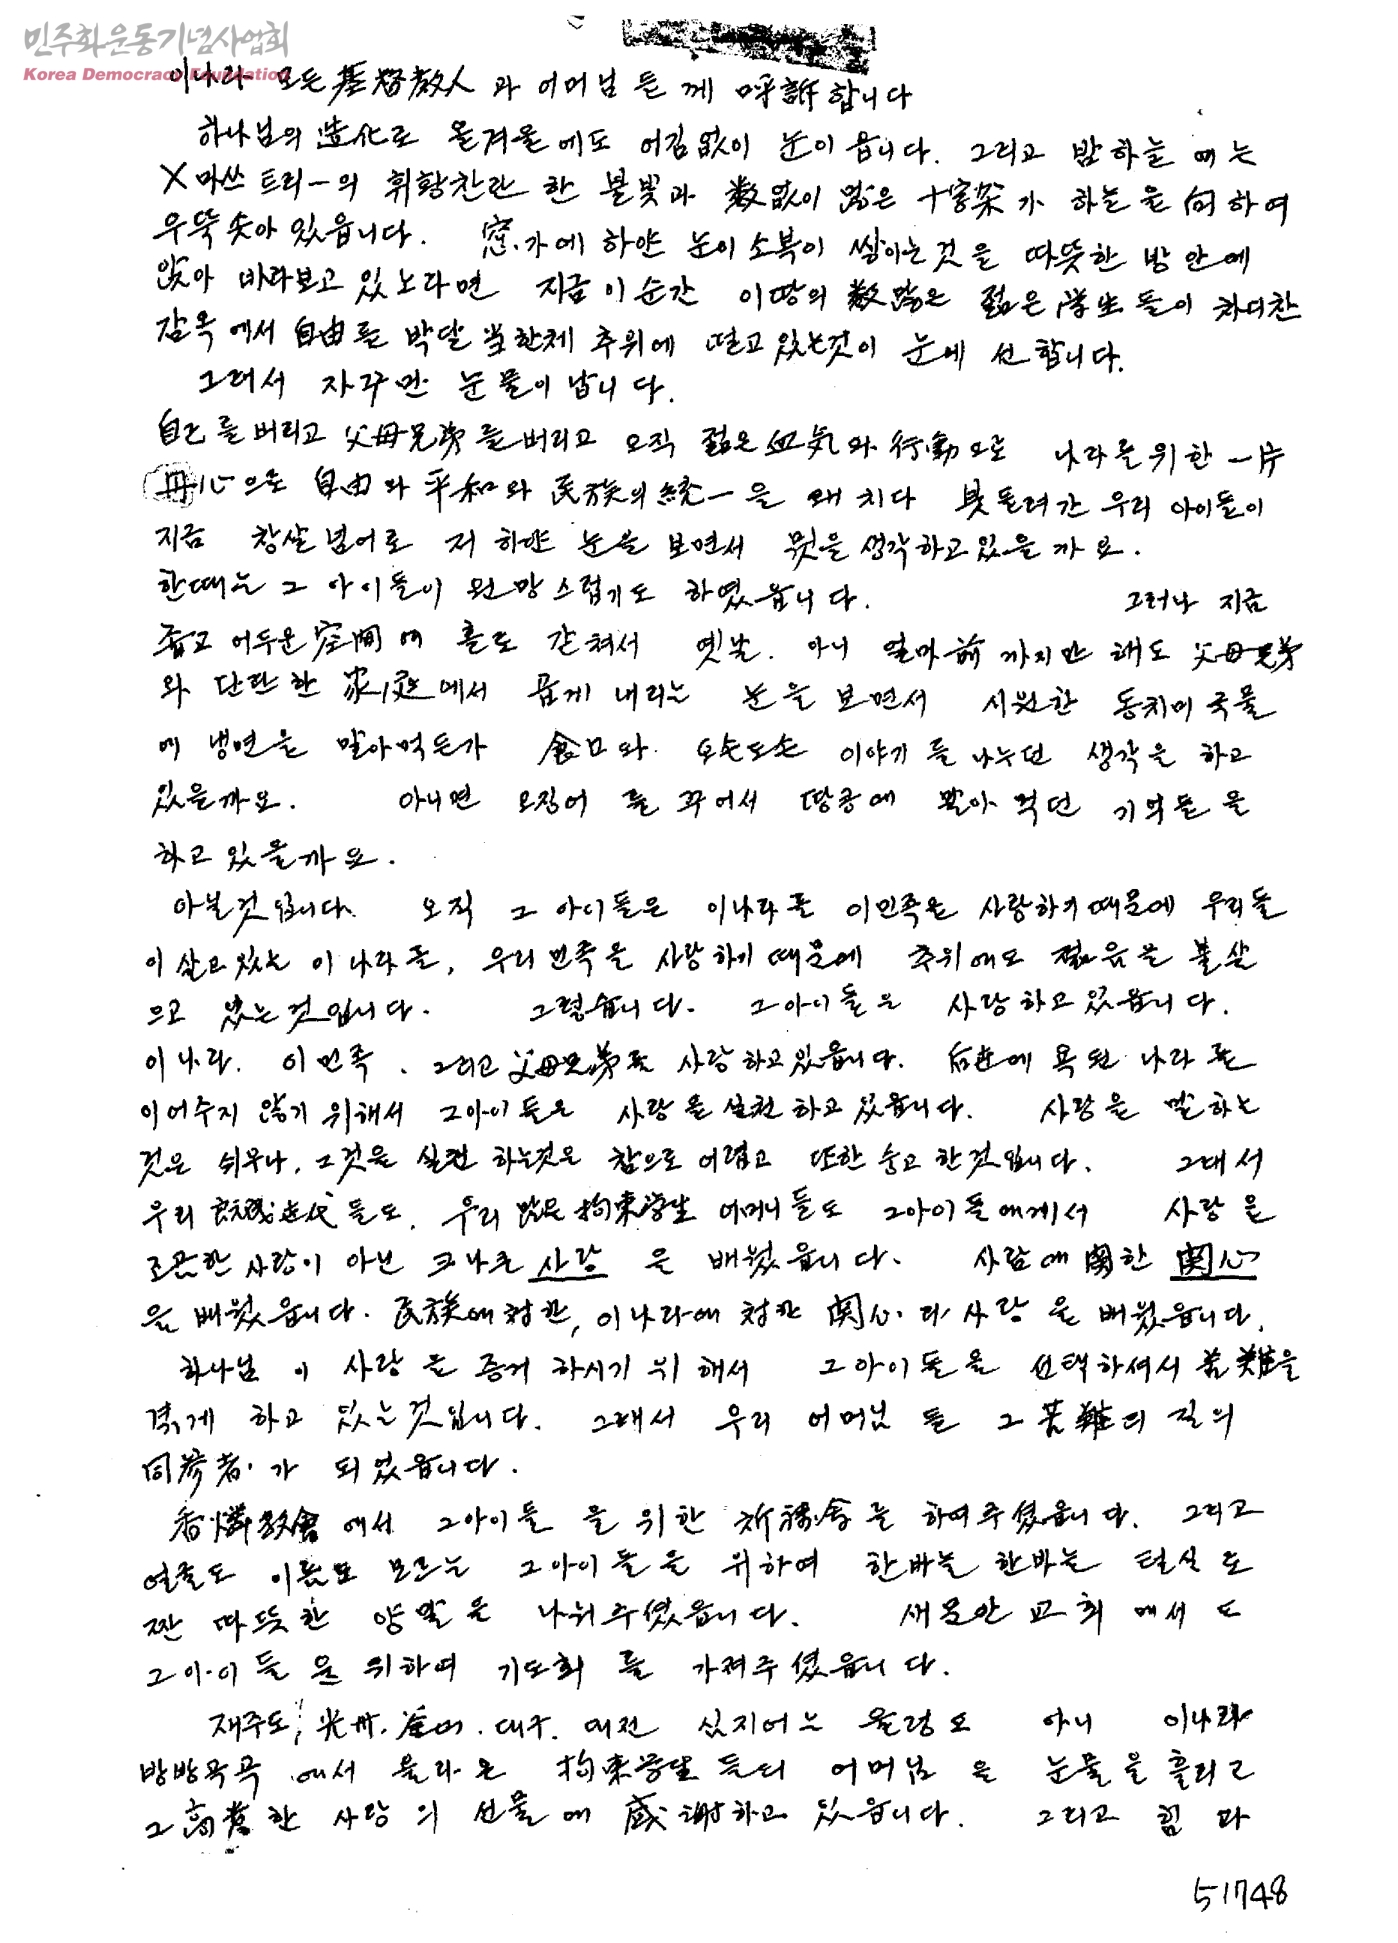 민주화운동기념사업회
Korea Democracy Foundation
이나라 모든 基督敎人 과 어머님 들 께 呼訴합니다
하나님의 造化로 올겨울에도 어김없이 눈이 옵니다. 그리고 밤하늘 에는
X마쓰 트리ー의 휘황찬란 한 불빛과 数없이 많은 十字架가 하늘을 向하여
우뚝 솟아 있읍니다. 窓가에 하얀 눈이 소복이 쌓이는것을 따뜻한 방안에
앉아 바라보고 있노라면 지금 이순간 이땅의 数많은 젊은 学生들이 차디찬
감옥에서 自由를 박탈 当한체 추위에 떨고 있는것이 눈에 선합니다.
그래서 자꾸만 눈물이 납니다.
自己를 버리고 父母兄弟를 버리고 오직 젊은 血気와 行動으로 나라를 위한 一片
丹心으로 自由와 平和와 民族의 統一을 왜치다 붙들려간 우리 아이들이
지금 창살 넘어로 저 하얀 눈을 보면서 무엇을 생각하고 있을까요.
한때는 그 아이들이 원망스럽기도 하였읍니다. 그러나 지금
좁고 어두운 空間에 홀로 갇쳐서 옛날. 아니 얼마前 까지만 해도 父母兄弟
와 단란한 家庭에서 곱게 내리는 눈을 보면서 시원한 동치미 국물
에 냉면을 말아먹든가 食口와 오손도손 이야기를 나누던 생각을 하고
있을까요. 아니면 오징어를 꾸어서 땅콩에 말아 먹던 기억들을
하고 있을까요.
아닐것입니다. 오직 그 아이들은 이나라를 이민족을 사랑하기때문에 우리들
이 살고 있는 이 나라를, 우리 민족을 사랑하기 때문에 추위에도 젊음을 불살
으고 있는것입니다. 그렇습니다. 그아이들은 사랑하고 있읍니다.
이나라. 이 민족. 그리고 父母兄弟를 사랑하고 있읍니다. 后世에 욕된 나라를
이어주지 않기 위해서 그아이들은 사랑을 실천하고 있읍니다. 사랑을 말하는
것은 쉬우나, 그것을 실천 하는것은 참으로 어렵고 또한 숭고한것입니다. 그래서
우리 旣成世代들도, 우리 많은 拘束学生 어머니들도 그아이들에게서 사랑을
조그만한 사랑이 아닌 크나큰 사랑 을 배웠읍니다. 사람에 関한 関心
을 배웠읍니다. 民族에 대한, 이나라에 대한 関心과 사랑을 배웠읍니다.
하나님 이 사랑을 증거 하시기 위해서 그아이들을 선택하셔서 苦難을
격게 하고 있는것입니다. 그래서 우리 어머님 들 그苦難의 길의
同参者가 되었읍니다.
香隣敎會에서 그아이들 을 위한 祈祷会를 하여주셨읍니다. 그리고
얼굴도 이름도 모르는 그아이들을 위하여 한바늘 한바늘 털실로
짠 따뜻한 양말을 나눠주셨읍니다. 새문안 교회에서도
그아이들을 위하여 기도회를 가져주셨읍니다.
재주도, 光州. 釜山. 대구. 대전 심지어는 울릉도 아니 이나라
방방곡곡에서 올라온 拘束学生들의 어머님은 눈물을 흘리고
그 高貴한 사랑의 선물에 感謝하고 있읍니다. 그리고 힘과
51748